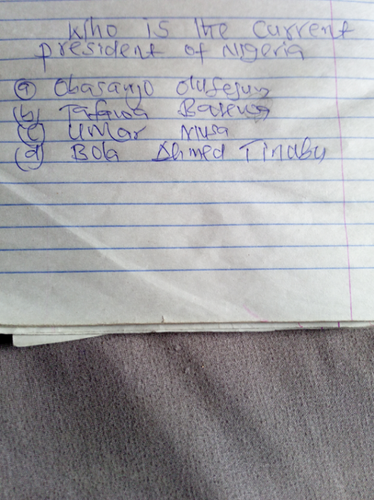 Who is the current
president of Nigeria
(a) Obasanjo Olufesun
(b) Tafawa Balewa
(c) Umar Musa
(d) Bola Ahmed Tinubu